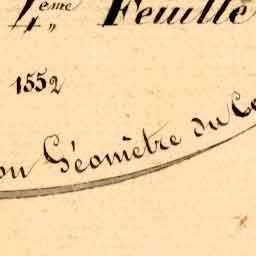 4eme Feuille
1552
Géomètre du